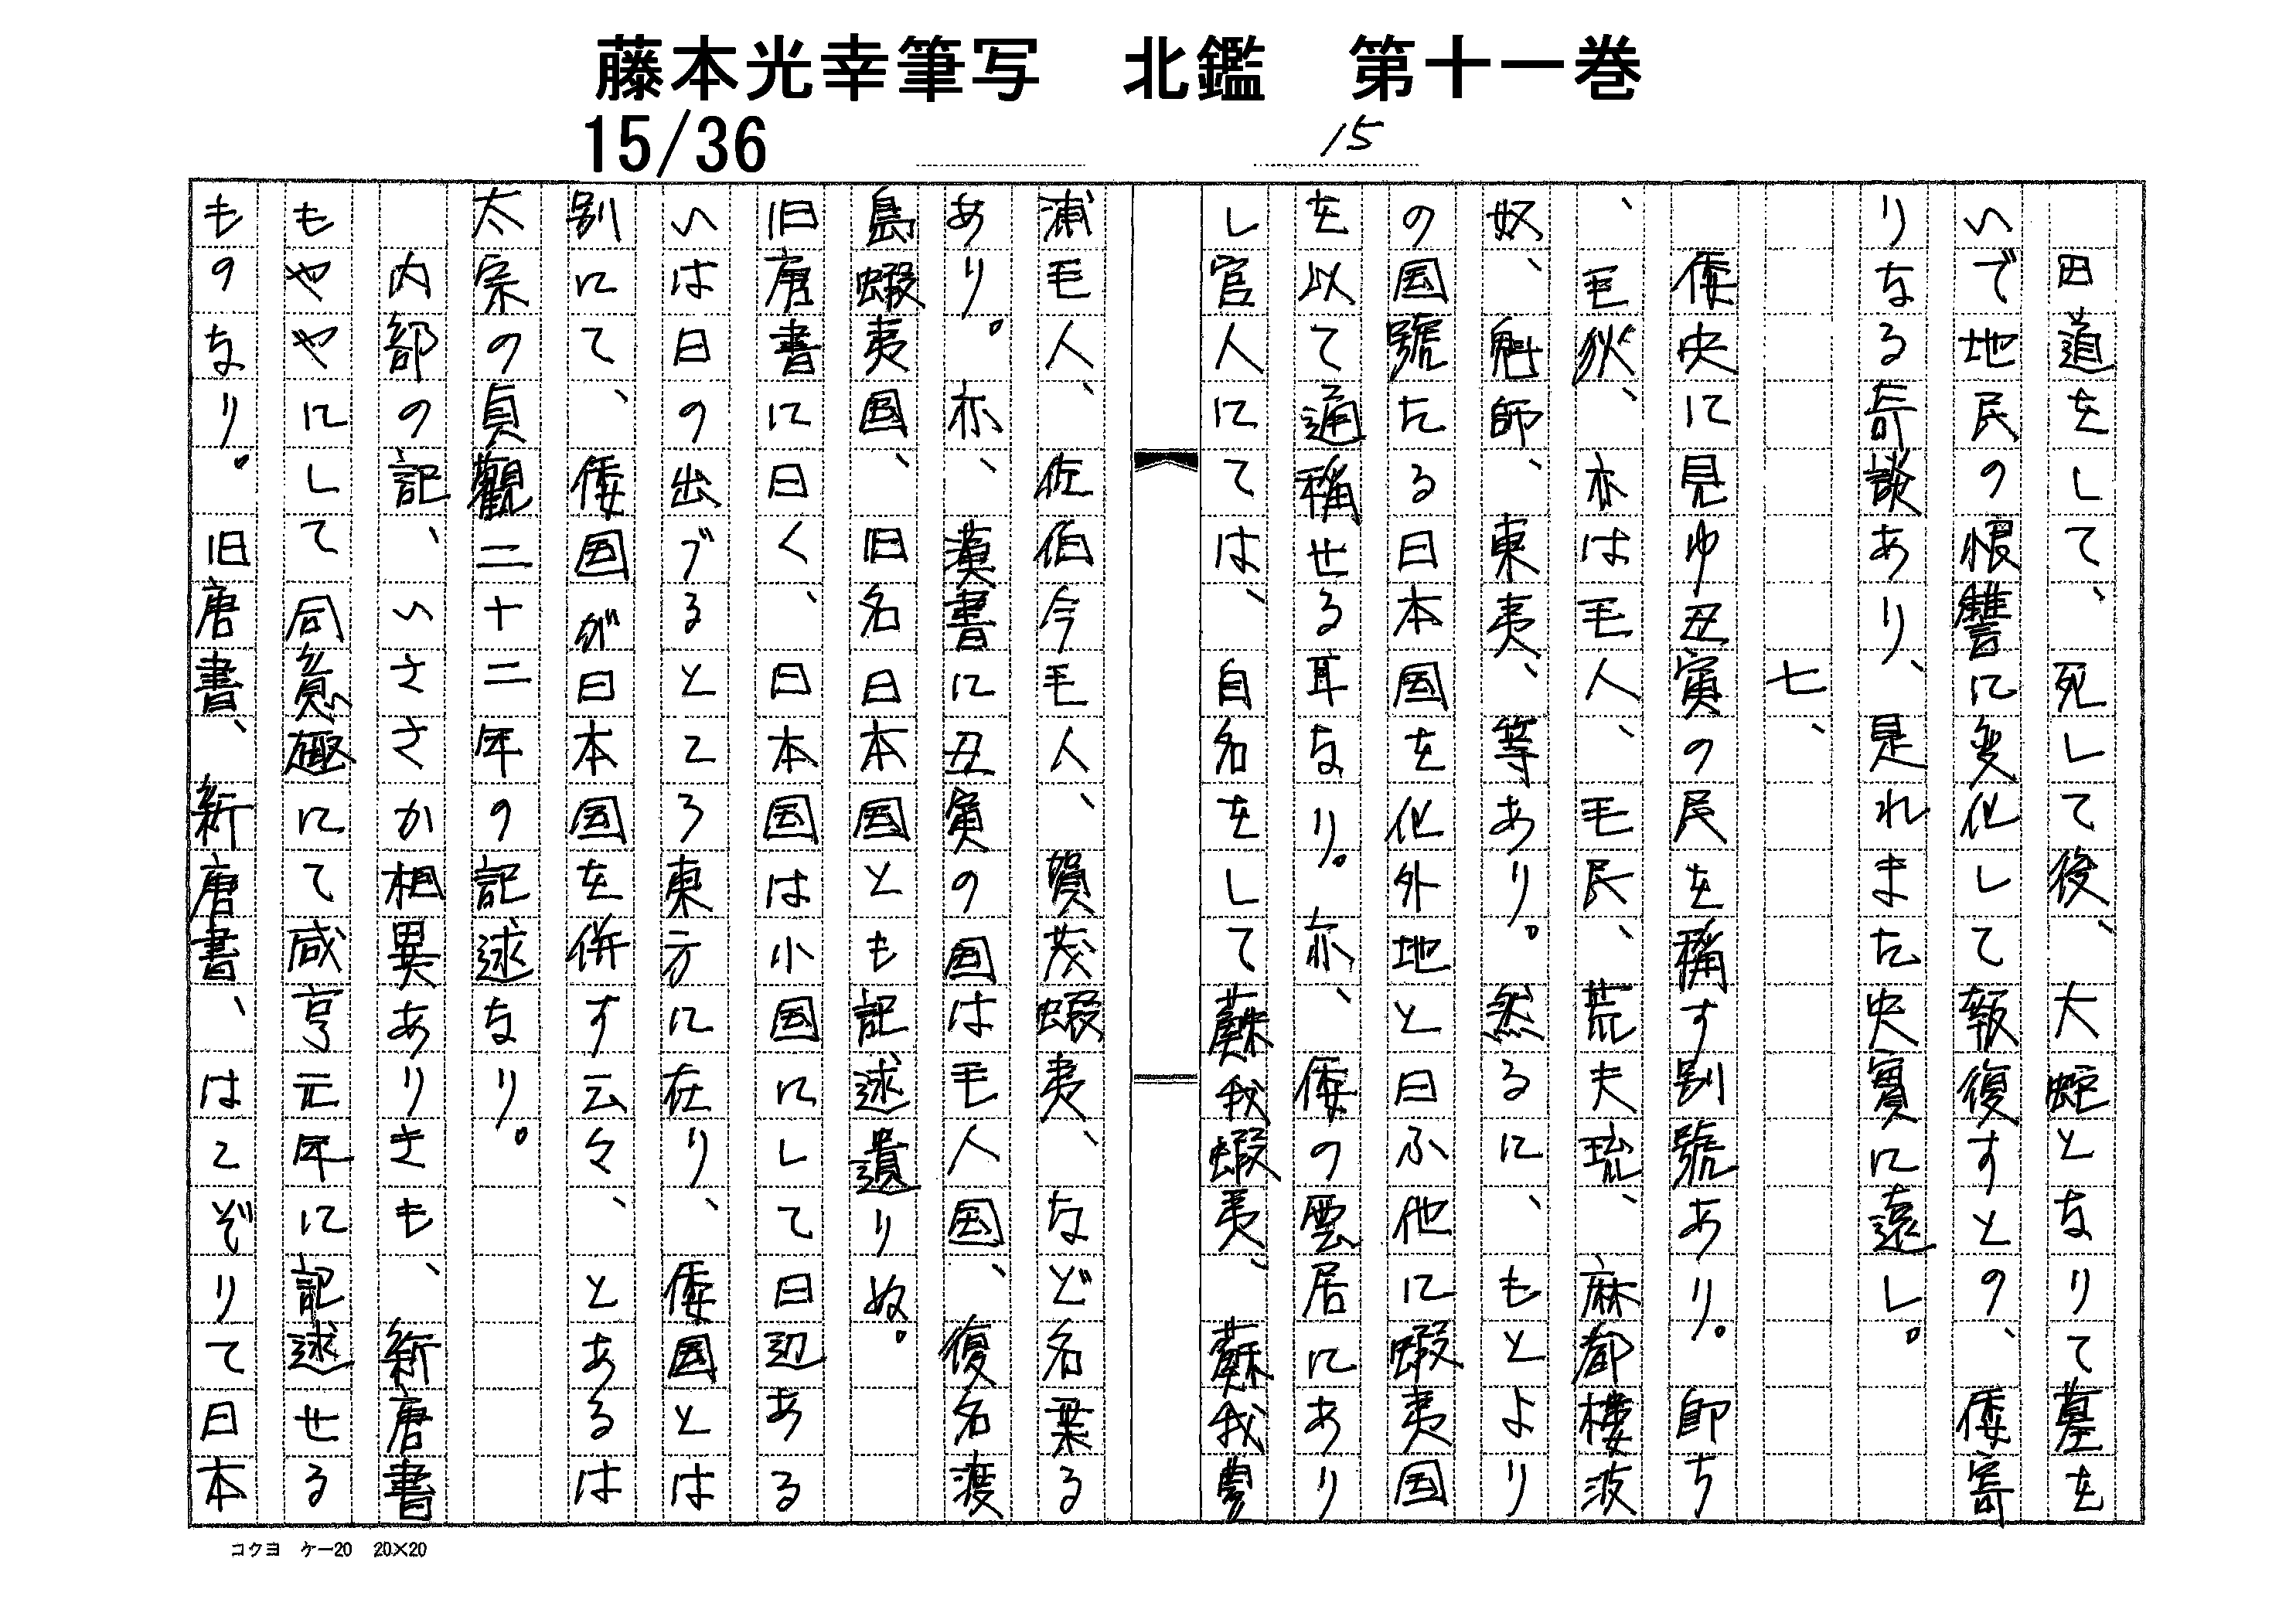 藤本光幸筆写　北鑑　第十一巻
15/36
15
田道をして、死して後、大蛇となりて墓を
いで地民の恨讐に変化して報復すとの、倭寄
りなる奇談あり、是れまた史實に遠し。
七、
倭史に見ゆ丑寅の民を稱す別號あり。即ち
、毛狄、亦は毛人、毛民、荒夫琉、麻都樓波
奴、魁師、東夷、等あり。然るに、もとより
の国號たる日本国を化外地と曰ふ他に蝦夷国
を以て通稱せる耳なり。亦、倭の雲居にあり
し官人にては、自名をして蘇我蝦夷、蘇我豊
浦毛人、佐伯今毛人、賀茂蝦夷、など名乗る
あり。亦、漢書に丑寅の国は毛人国、復名渡
島蝦夷国、旧名日本国とも記述遺りぬ。
旧唐書に曰く、日本国は小国にして日辺ある
いは日の出づるところ東方に在り、倭国とは
別にて、倭国が日本国を併す云々、とあるは
太宗の貞觀二十二年の記述なり。
内部の記、いささか相異ありきも、新唐書
もややにして同意趣にて咸亨元年に記述せる
ものなり。旧唐書、新唐書、はこぞりて日本
コクヨ　ケー20　20×20